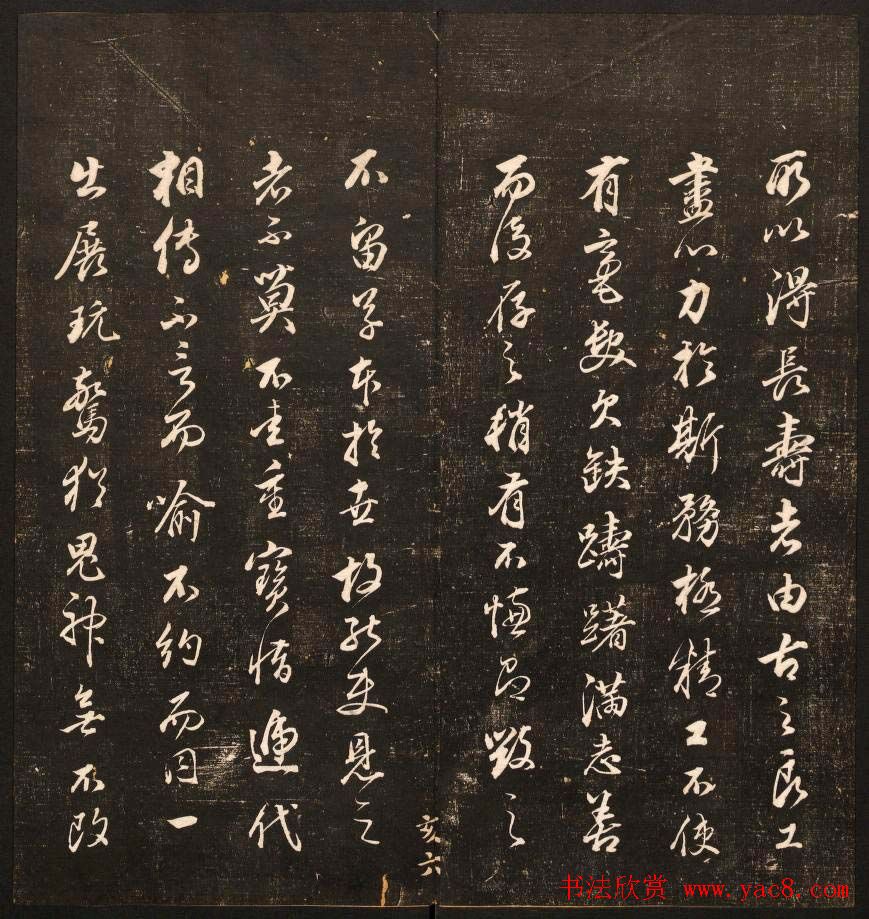 所以得長壽者由古之良工
盡心力於斯務極精工不使
有毫髮欠缺躊躇滿志善
而後存之稍有不慊即毀之
不留草本於世故能使見之
者莫不重寶惜遞代
相傳不言而喻不約而同一
出展玩驚猶鬼神無不改
亥六
书法欣赏 www.yac8.com